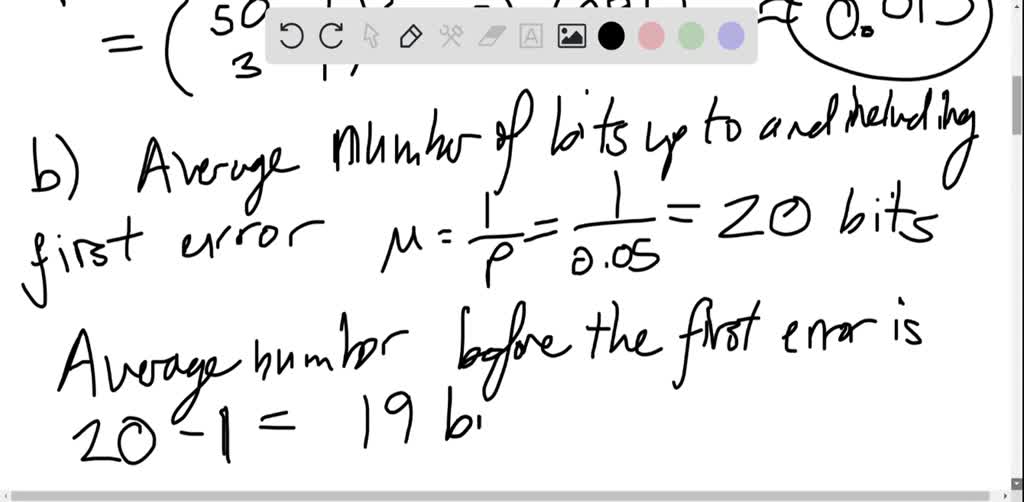 = (50
3
0.013
b) Average number of bits up to and including
first error μ = 1/p = 1/0.05 = 20 bits
Average number before the first error is
20 - 1 = 19 bi